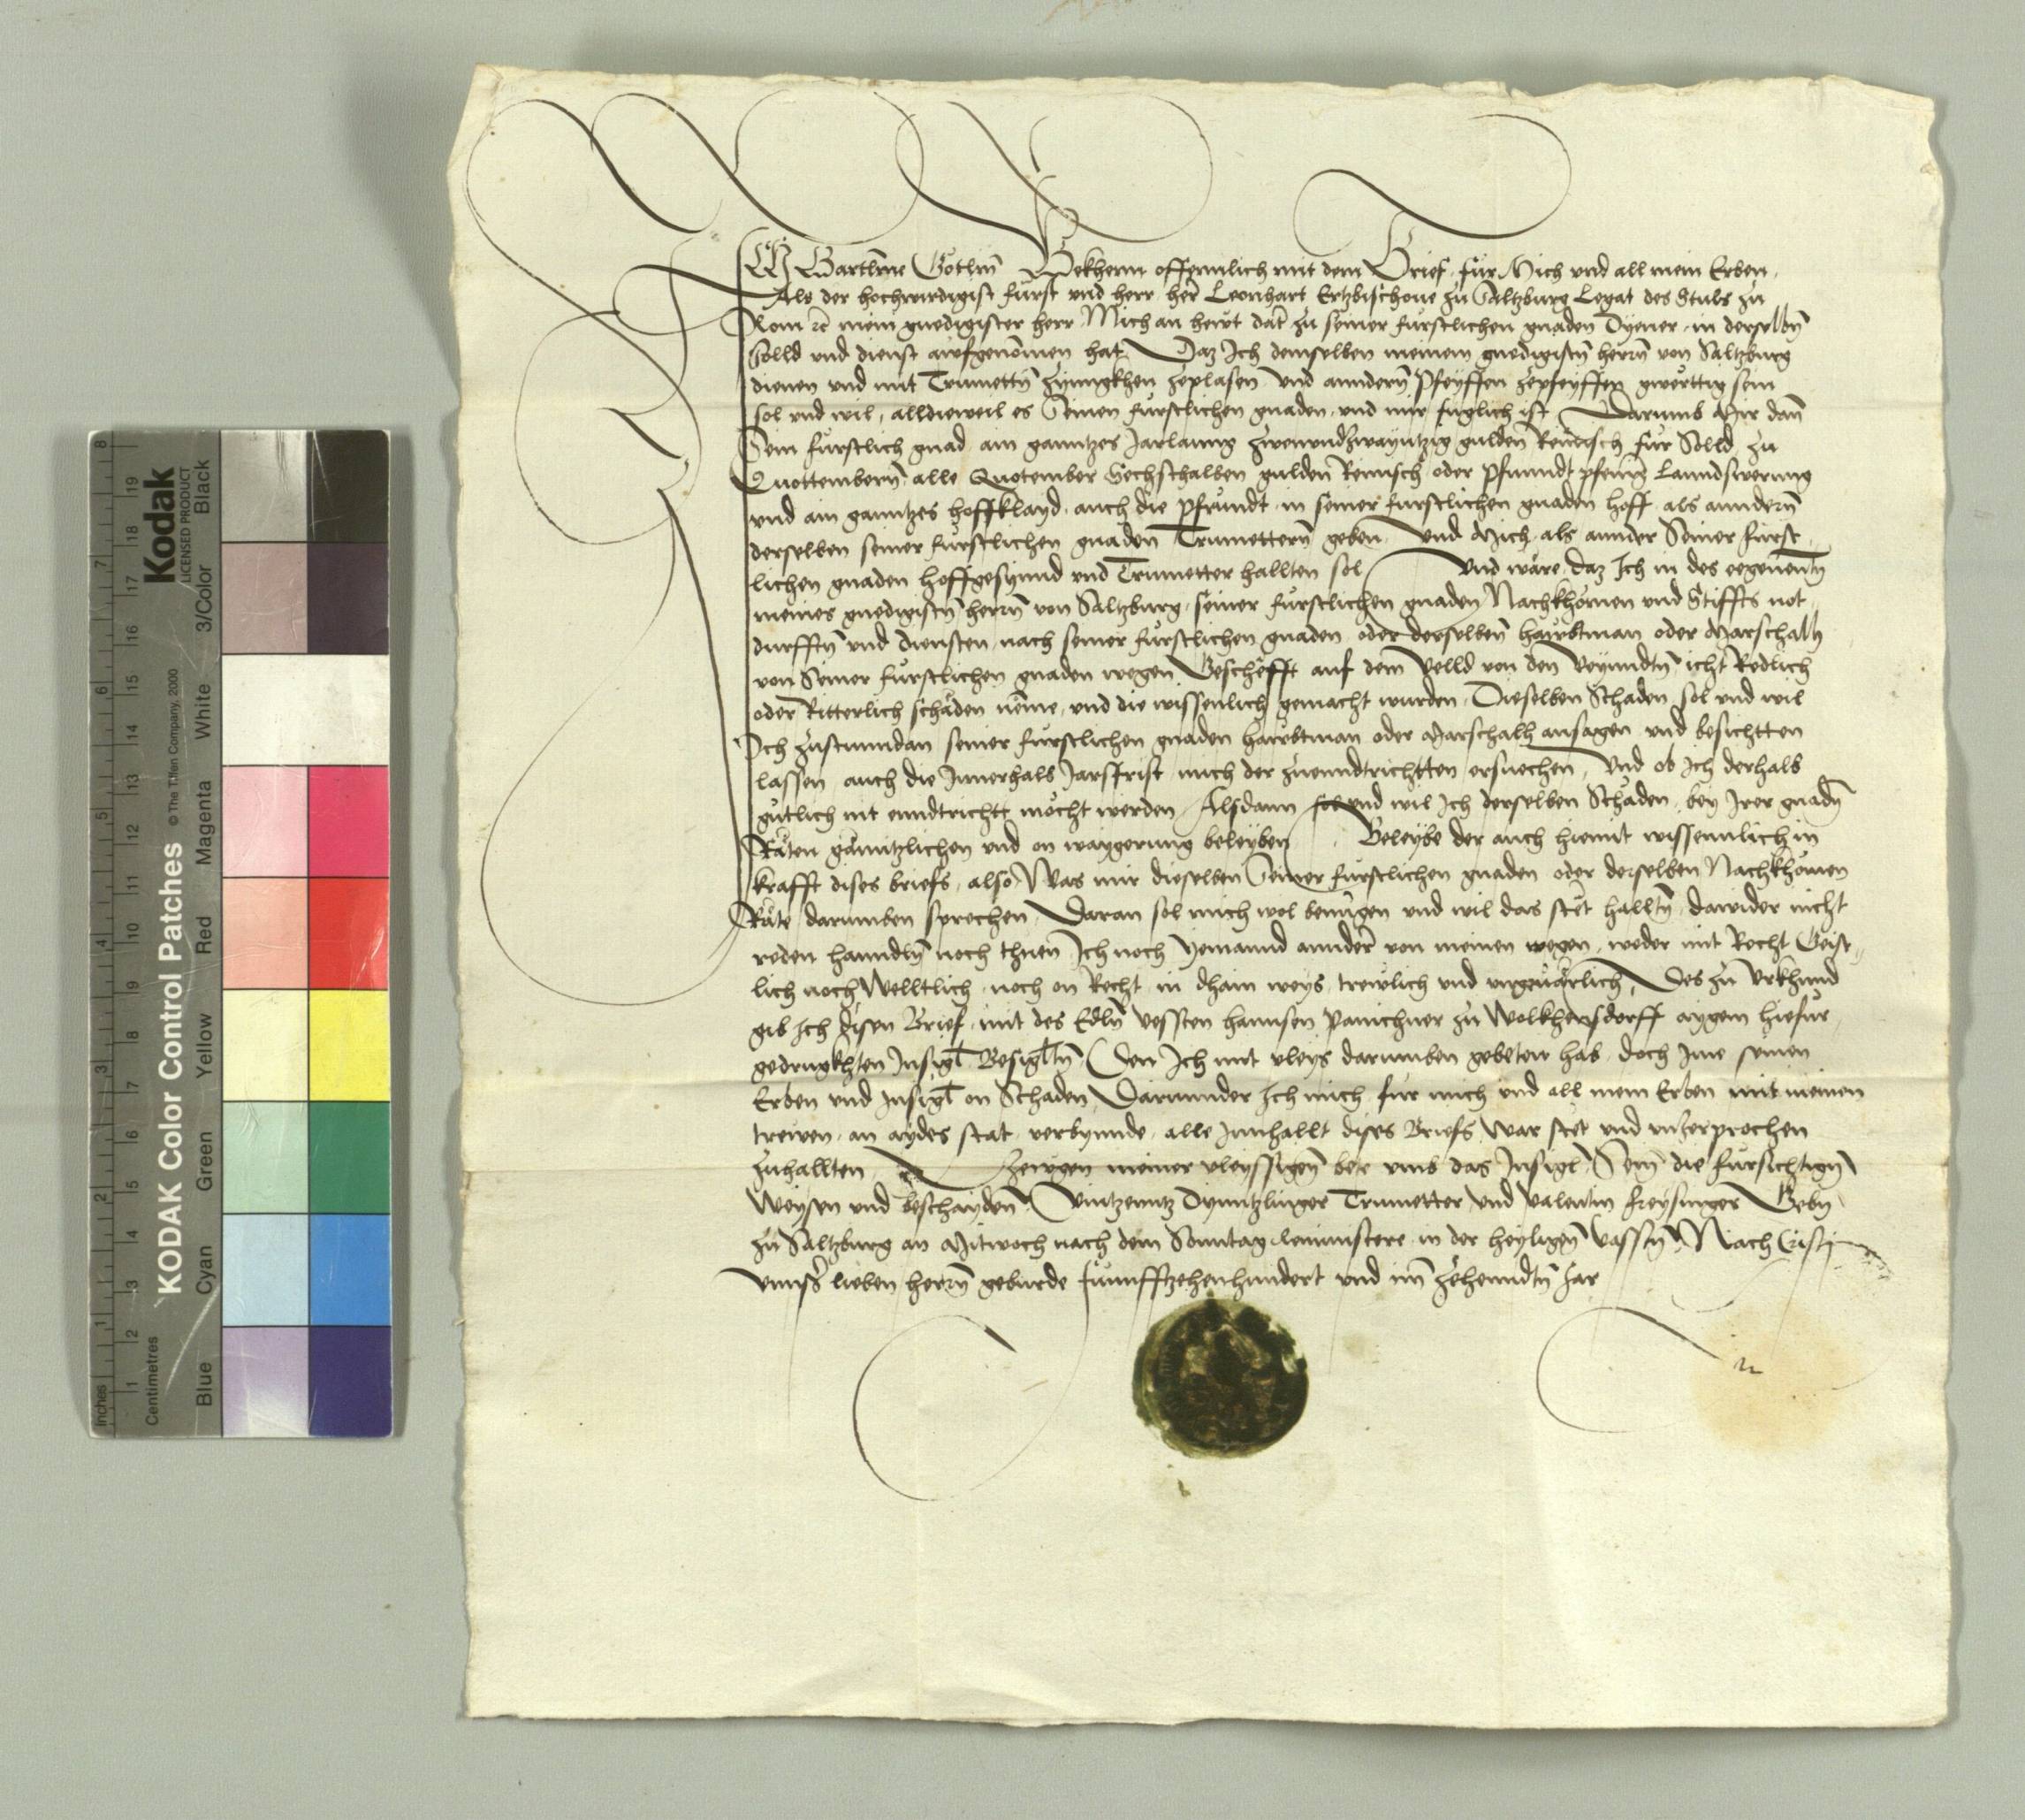 ICH Bartlme Götlin Bekhenn offennlich mit dem Brief für Mich vnd all mein Erben
Als der hochwirdigist fürst vnd herr her Leonhart Ertzbischoue zu Saltzburg Legat des Stuls zu
Rom rc mein gnedigister herr Mich an hewt dat zu seiner fürstlichen gnaden Dyener in derselbn
Solld vnd dienst aufgenomen hat Daz Ich demselben meinem gnedigistn herrn von Saltzburg
dienen vnd mit Trumettn Zynngkhen zeplasen vnd anndern Pfeyffen zepfeyffen gwerttig sein
sol vnd wil, alldieweil es Seinen fürstlichen gnaden vnd mir fuglich ist Darumb Mir dan
Sein fürstlich gnad ain ganntzes Jar lanng zwenundzwayntzig gulden Reinisch für Solld zu
Quottembern alle Quotember Sechsthalben gulden Reinisch oder pfunndt pfening lanndswerung
vnd ain ganntzes hoffklayd auch die pfründt in seiner fürstlichen gnaden hoff als anndern
derselben seiner fürstlichen gnaden Trumettern geben Vnd Mich als annder Seiner fürst
lichen gnaden hoffgesynnd vnd Trumetter hallten sol Vnd wäre daz Ich in des egenentn
meines gnedigistn herrn von Saltzburg seiner fürstlichen gnaden Nachkhomen vnd Stiffts not
durfftn vnd diensten nach seiner fürstlichen gnaden oder derselben haubtman oder Marschalh
von Seiner fürstlichen gnaden wegen Geschefft auf dem Velld von den Veynndtn icht Redlich
oder Ritterlich schäden neme, vnd die wissenlich gemacht wurden Dieselben Schaden sol vnd wil
Ich zustunndan seiner fürstlichen gnaden haubtman oder Marschalh ansagen vnd besichtten
lassen auch die Innerhalb Jarsfrist mich der zuenndtrichtten ersuechen, Vnd ob ich derhalb
gütlich nit enndtricht möcht werden Alsdann sol vnd wil Ich derselben Schäden bey Irer gnadn
Räten gänntzlichen vnd on waygerung beleyben Beleybe der auch hiemit wissenntlich in
krafft dises briefs, also Was mir dieselben Seiner fürstlichen gnaden oder derselben Nachkhomen
Räte darumben sprechen Daran sol mich wol benügen vnd wil das stet halltn dawider nicht
reden hanndln noch thuen Ich noch yemannd annder von meinen wegen weder mit Recht Geist
lich noch Welltlich noch on Recht in dhain weys trewlich vnd vngeuärlich, Des zu Vrkhund
gib Ich disen Brief mit des Edln vessten hannsen Panichner zu Wolkhenstorff aygem hiefür
gedrugkhten Insigl Besigltn Den Ich mit vleys darumben gebeten hab doch Ime seinen
Erben vnd Insigl on Schaden, Darunnder Ich mich für mich vnd all mein Erben mit meinen
trewen an aydes stat verbynnde alle Innhallt dises Briefs War stet vnd vnzerprochen
zuhallten Zewgen meiner vleyssigen bete vmb das Insigl Sein die fürsichtign
Weysen vnd beschayden Vintzenntz Dynntzlinger Trumetter vnd Valentin freysinger Gebn
zu Saltzburg an Mitwoch nach dem Sonntag Reministere in der heyligen Vasstn Nach Cristj
vnnsers lieben herrn geburde fünffzehenhundert vnd im Zehenndtn Jar